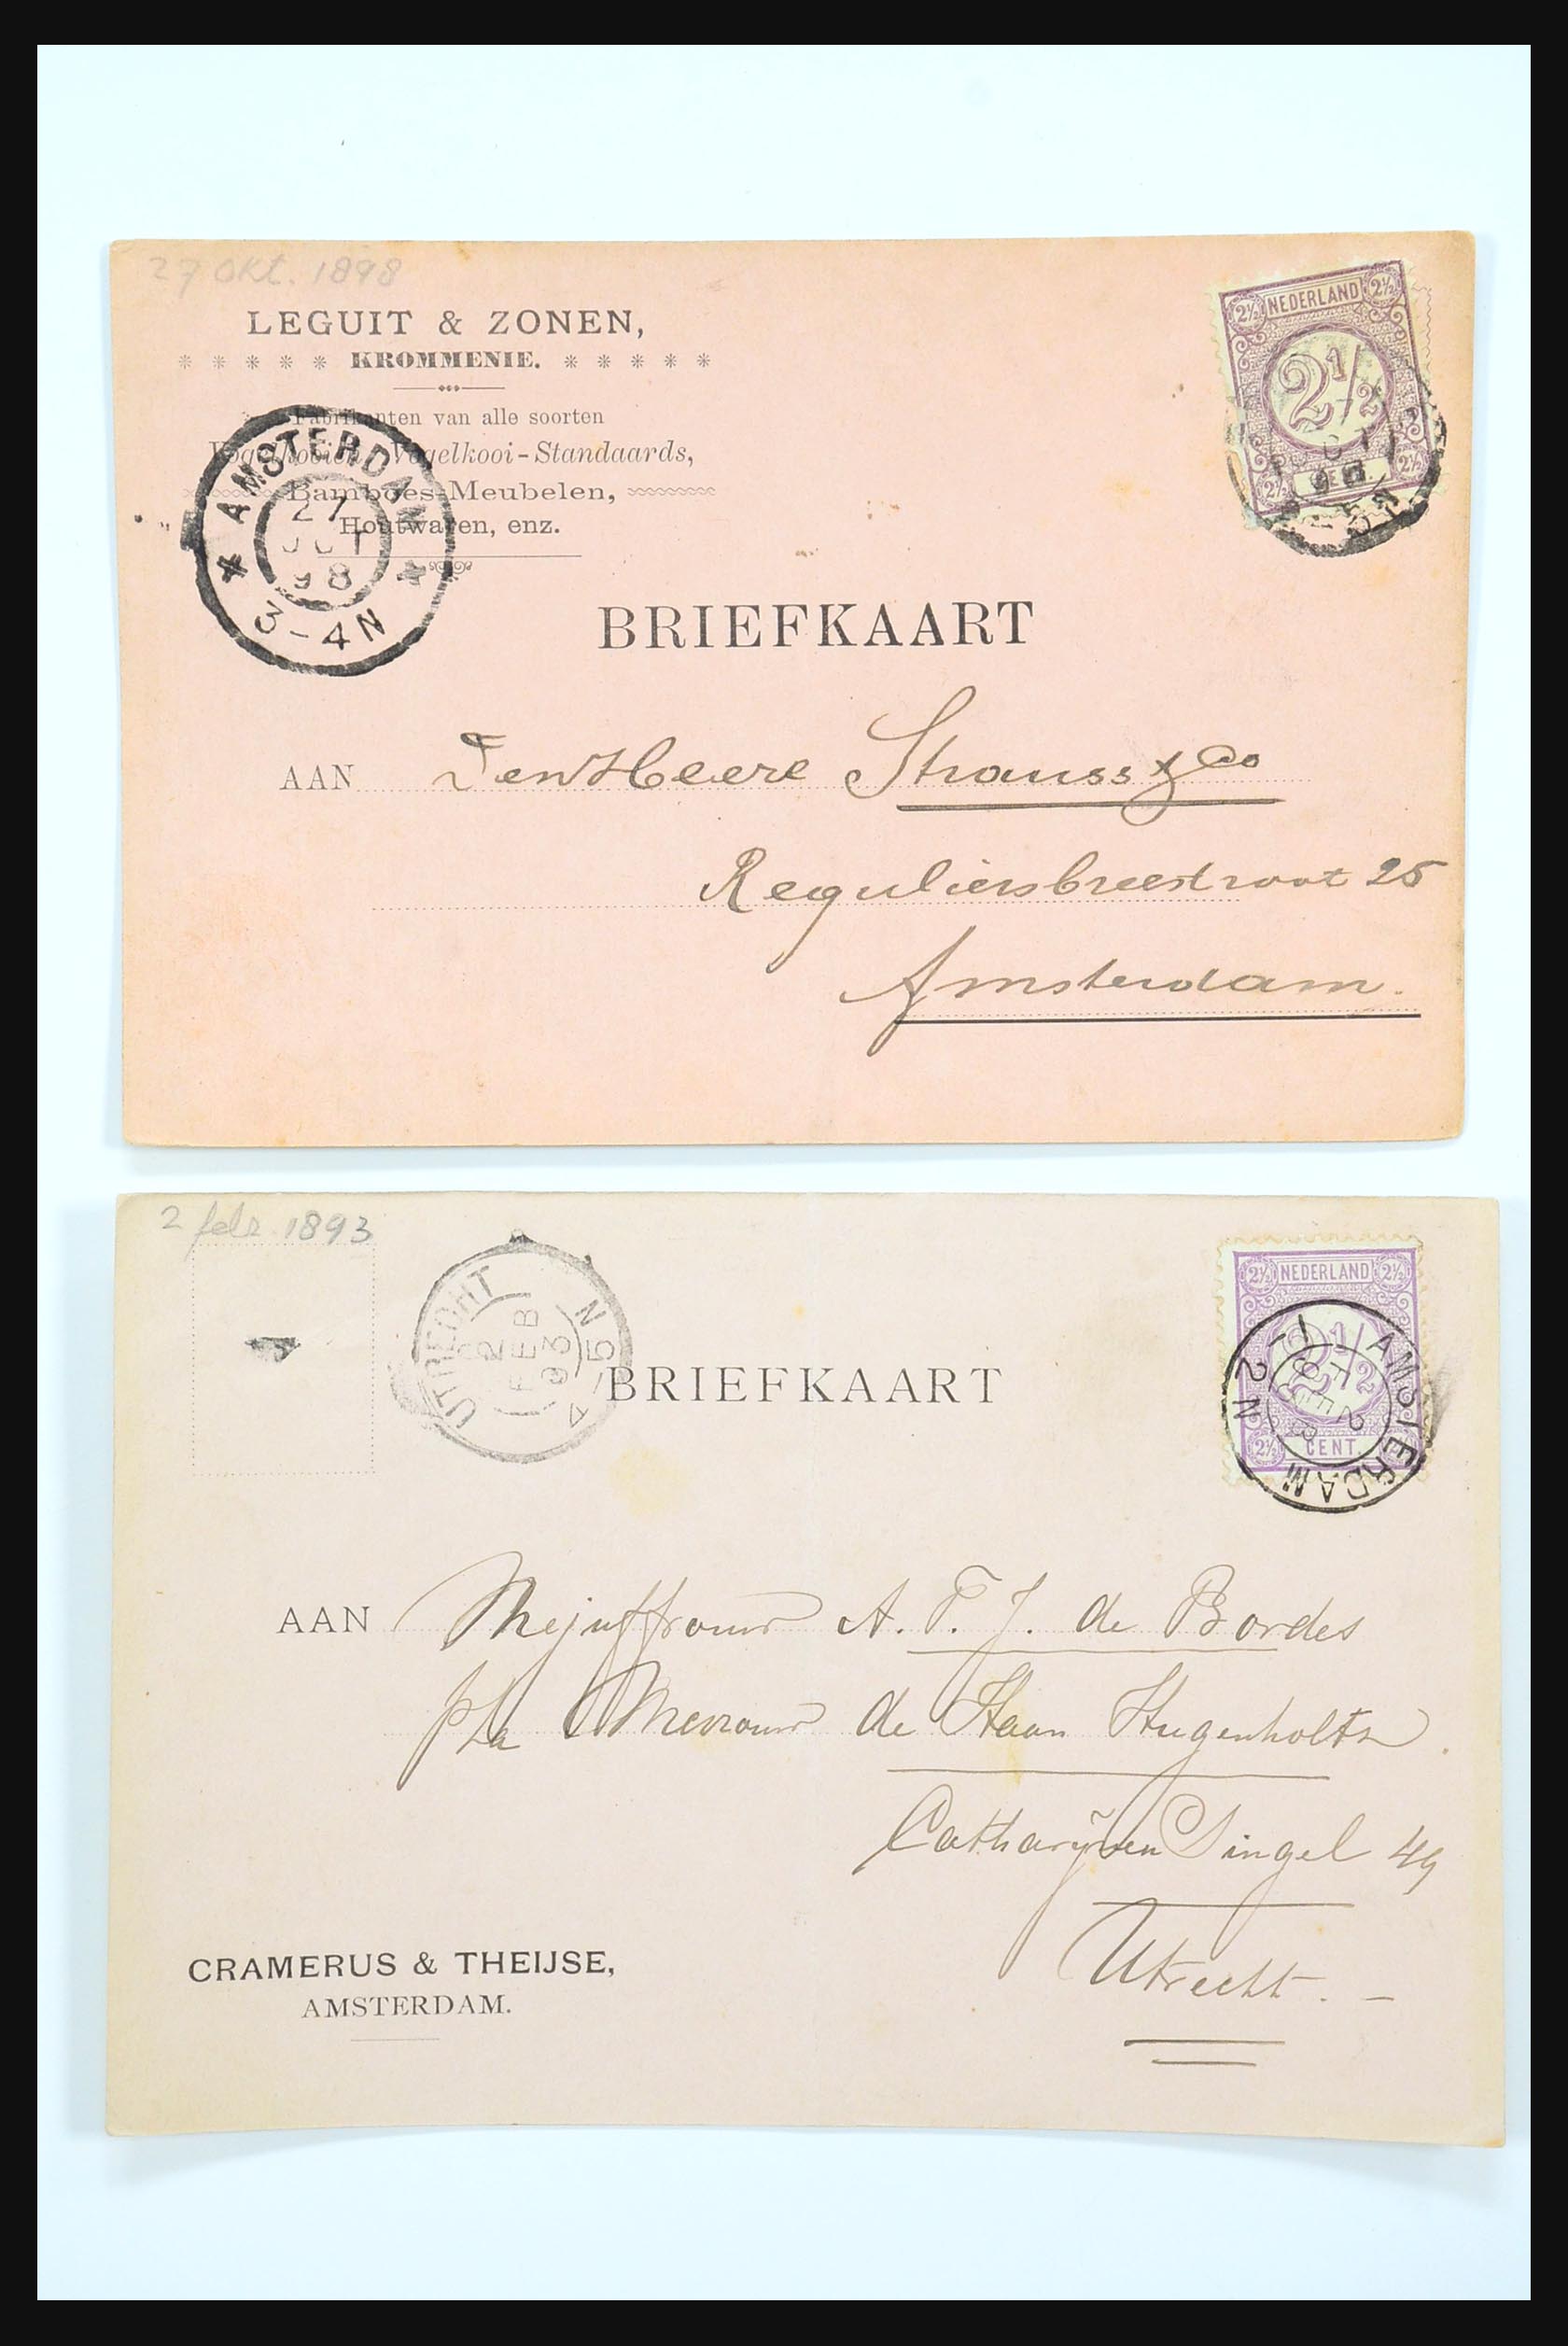 27 okt. 1898
LEGUIT & ZONEN,
KROMMENIE.
Fabrikanten van alle soorten
Vogelkooien, Vogelkooi-Standaards,
Bamboes-Meubelen,
Houtwaren, enz.
AMSTERDAM
27
OCT
98
3-4N
NEDERLAND
2½ 2½
2½
2½ CENT. 2½
BRIEFKAART
AAN Den Heere Strauss & Co
Reguliersbreestraat 25
Amsterdam.
2 febr. 1893
UTRECHT
2
FEB
93
4-5N
NEDERLAND
2½ 2½
2½
2½ CENT. 2½
AMSTERDAM
2 FEB
93
1-2N
BRIEFKAART
AAN Mejuffrouw A. F. J. de Bordes
p/a Mevrouw de Haan Hugenholtz
Catharijnen Singel 49
Utrecht. –
CRAMERUS & THEIJSE,
AMSTERDAM.